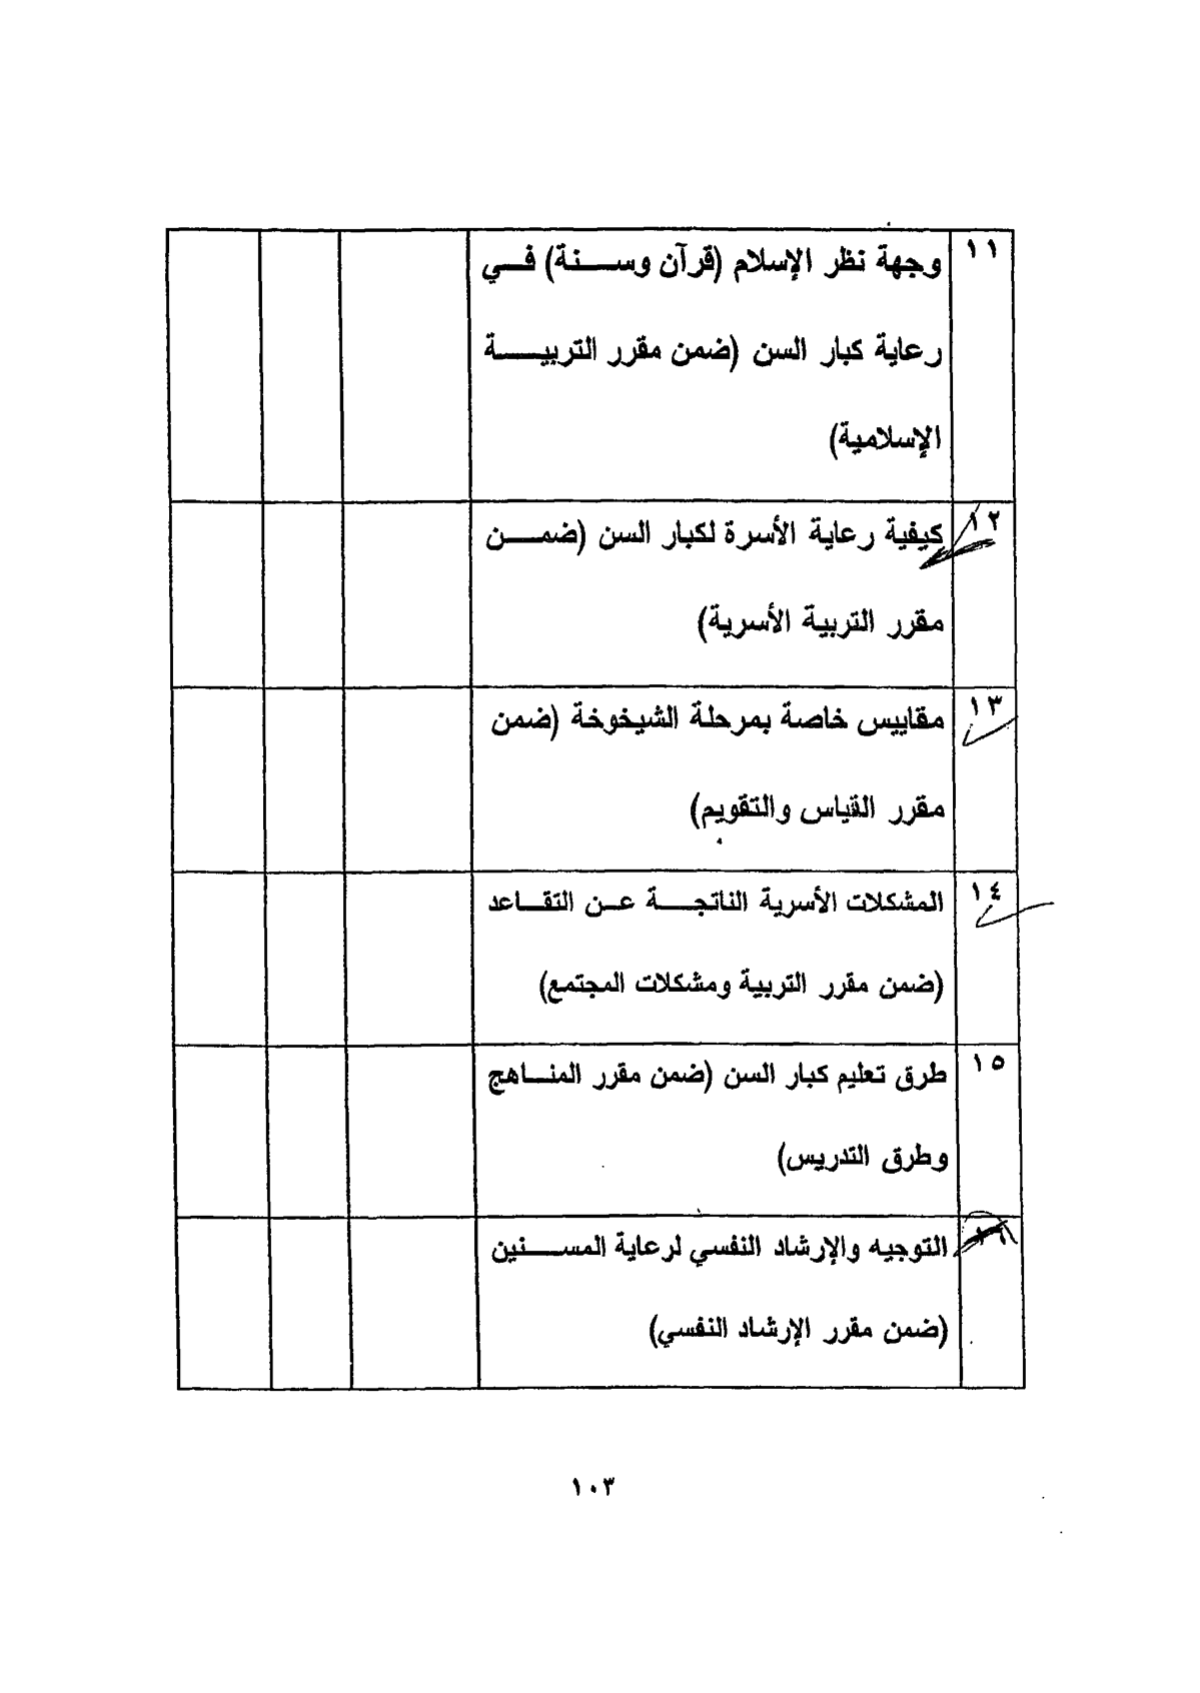 ١١ وجهة نظر الإسلام (قرآن وسنة) في
رعاية كبار السن (ضمن مقرر التربية
الإسلامية)
١٢ كيفية رعاية الأسرة لكبار السن (ضمن
مقرر التربية الأسرية)
١٣ مقاييس خاصة بمرحلة الشيخوخة (ضمن
مقرر القياس والتقويم)
١٤ المشكلات الأسرية الناتجة عن التقاعد
(ضمن مقرر التربية ومشكلات المجتمع)
١٥ طرق تعليم كبار السن (ضمن مقرر المناهج
وطرق التدريس)
١٦ التوجيه والإرشاد النفسي لرعاية المسنين
(ضمن مقرر الإرشاد النفسي)
١٠٣